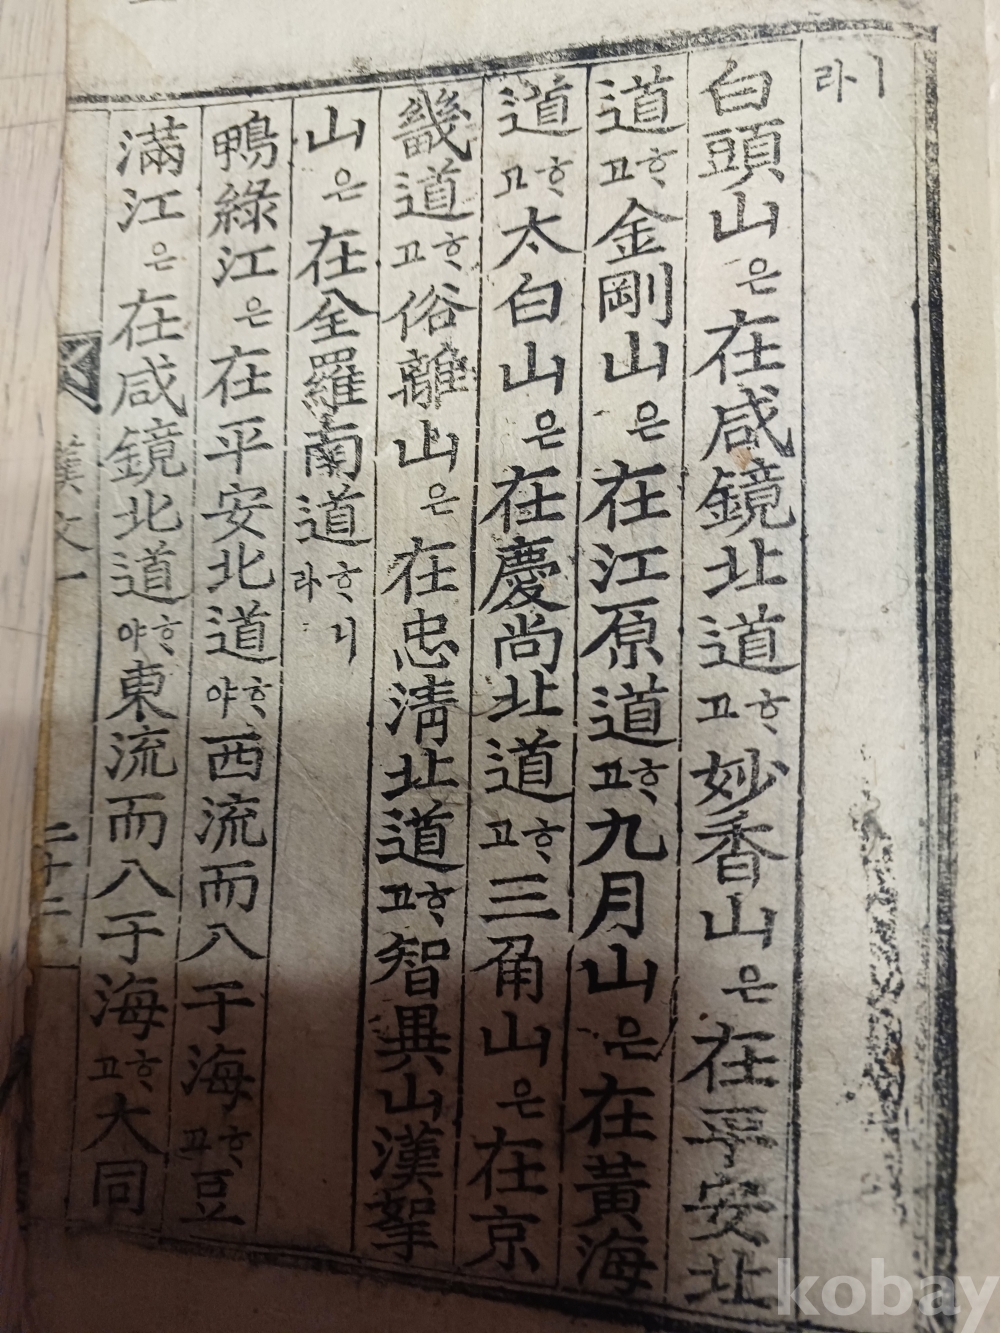 ㅣ라
白頭山은在咸鏡北道ᄒᆞ고妙香山은在平安北
道ᄒᆞ고金剛山은在江原道ᄒᆞ고九月山은在黃海
道ᄒᆞ고太白山은在慶尙北道ᄒᆞ고三角山은在京
畿道ᄒᆞ고俗離山은在忠淸北道ᄒᆞ고智異山漢拏
山은在全羅南道ᄒᆞ니라
鴨綠江은在平安北道ᄒᆞ야西流而入于海ᄒᆞ고豆
滿江은在咸鏡北道ᄒᆞ야東流而入于海ᄒᆞ고大同
漢文一
二十二
kobay